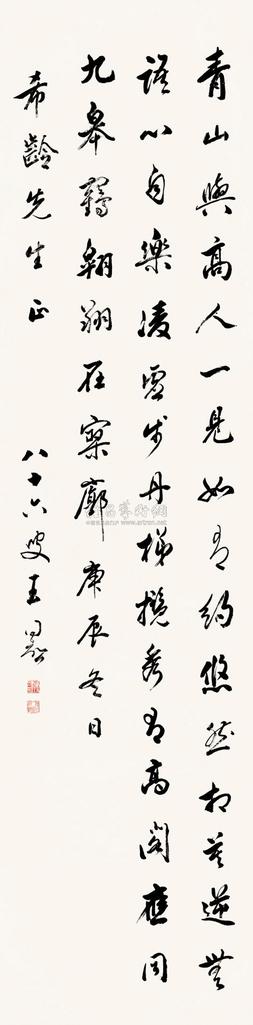 青山與高人一見如有約悠然相莫逆無
語心自樂凌雲步丹梯攬秀有高閣應同
九皋鶴翱翔在寥廓 庚辰冬日
希齡先生正 八十六叟王同愈